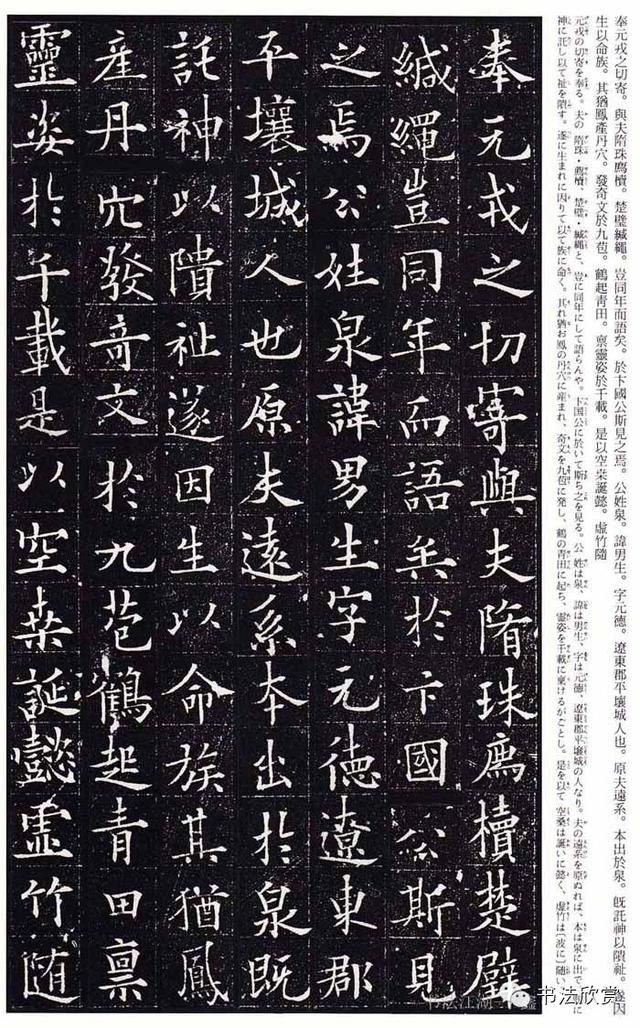 奉元戎之切寄。與夫隋珠廌櫝。楚璧緘繩。豈同年而語矣。於卞國公斯見之焉。公姓泉。諱男生。字元德。遼東郡平壤城人也。原夫遠系。本出於泉。既託神以隤祉。遂因
生以命族。其猶鳳產丹穴。發奇文於九苞。鶴起青田。禀靈姿於千載。是以空桑誕懿。虛竹隨
元戎の切寄を奉る。夫の 隋珠・廌櫝、楚璧・緘繩と、豈に同年にして語らんや。卞国公に於いて斯ち之を見る。公 姓は泉、諱は男生、字は元德、遼東郡平壤城の人なり。夫の遠系を原ぬれば、本は泉に出で、既に
神に託し以て祉を隤す。遂に生まれに因りて以て族に命く。其れ猶お鳳の丹穴に産まれ、奇文を九苞に発し、鶴の青田に起ち、靈姿を千載に稟けるがごとし。是を以て 空桑は誕いに懿く、虛竹は〔波に〕随い
奉元戎之切寄與夫隋珠廌櫝楚璧
緘繩豈同年而語矣於卞國公斯見
之焉公姓泉諱男生字元德遼東郡
平壤城人也原夫遠系本出於泉既
託神以隤祉遂因生以命族其猶鳳
產丹穴發奇文於九苞鶴起青田稟
靈姿於千載是以空桑誕懿虛竹隨
书法欣赏